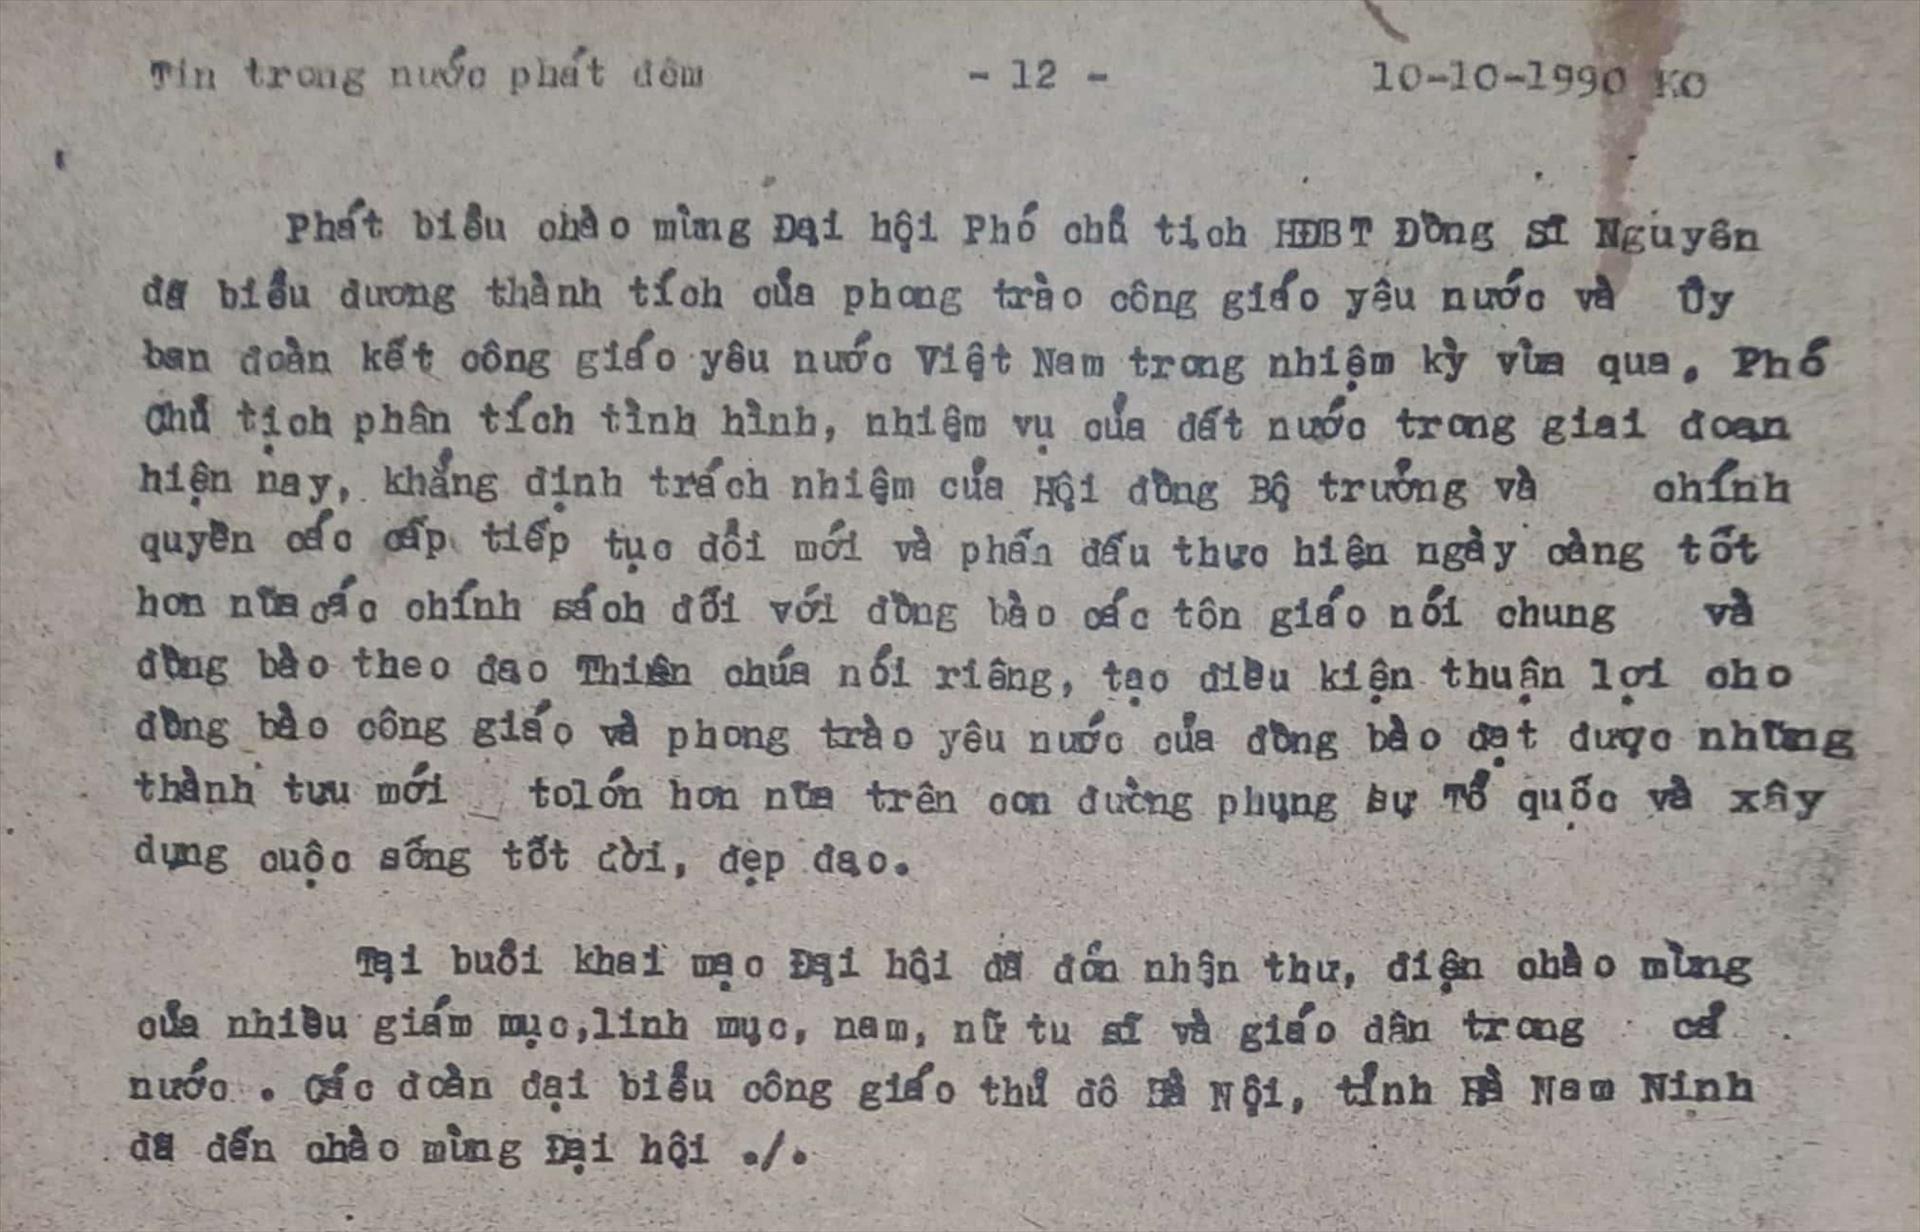 Tin trong nước phát đêm - 12 - 10-10-1990 KO
Phát biểu chào mừng Đại hội Phó chủ tịch HĐBT Đồng Sĩ Nguyên
đã biểu dương thành tích của phong trào công giáo yêu nước và Ủy
ban đoàn kết công giáo yêu nước Việt Nam trong nhiệm kỳ vừa qua. Phó
Chủ tịch phân tích tình hình, nhiệm vụ của đất nước trong giai đoạn
hiện nay, khẳng định trách nhiệm của Hội đồng Bộ trưởng và chính
quyền các cấp tiếp tục đổi mới và phấn đấu thực hiện ngày càng tốt
hơn nữa các chính sách đối với đồng bào các tôn giáo nói chung và
đồng bào theo đạo Thiên chúa nói riêng, tạo điều kiện thuận lợi cho
đồng bào công giáo và phong trào yêu nước của đồng bào đạt được những
thành tưu mới tolớn hơn nữa trên con đường phụng sự Tổ quốc và xây
dựng cuộc sống tốt đời, đẹp đạo.
Tại buổi khai mạc Đại hội đã đón nhận thư, điện chào mừng
của nhiều giám mục,linh mục, nam, nữ tu sĩ và giáo dân trong cả
nước . Các đoàn đại biểu công giáo thủ đô Hà Nội, tỉnh Hà Nam Ninh
đã đến chào mừng Đại hội ./.